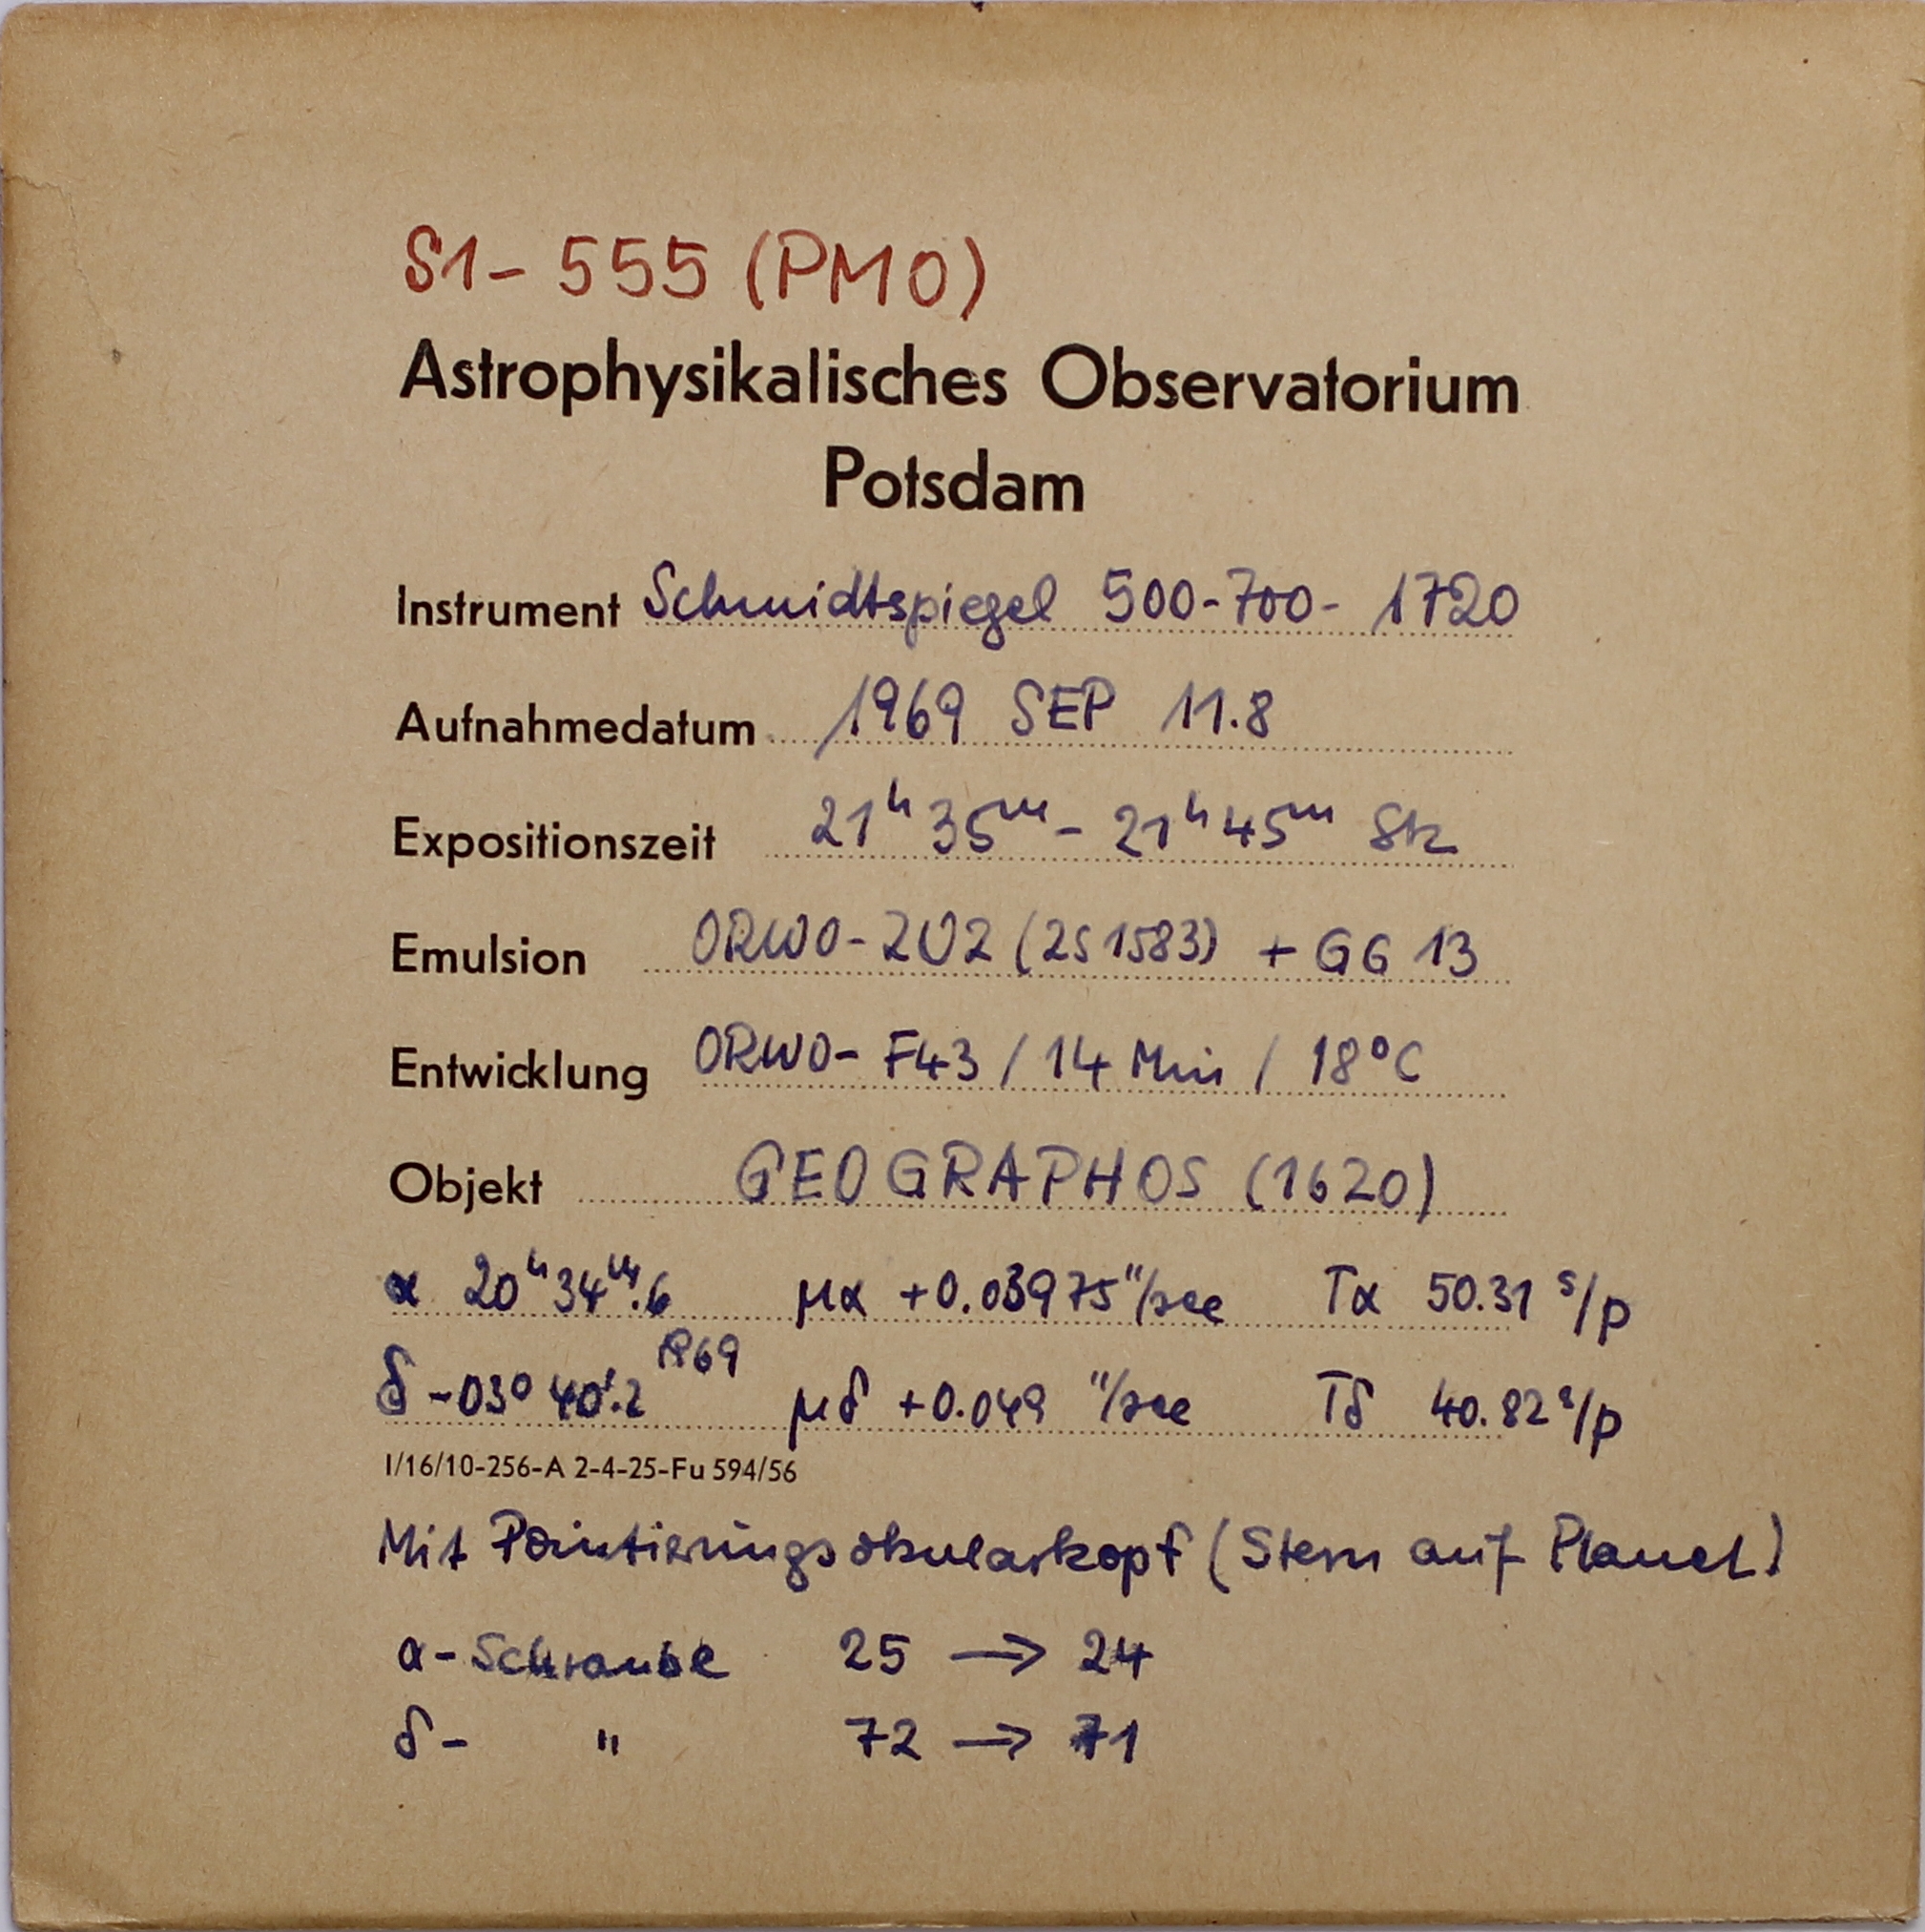 S1- 555 (PMO)
Astrophysikalisches Observatorium
Potsdam
Instrument Schmidtspiegel 500-700- 1720
Aufnahmedatum 1969 SEP 11.8
Expositionszeit 21ʰ 35ᵐ - 21ʰ 45ᵐ Stz
Emulsion ORWO-ZU2 (2S 1583) + GG 13
Entwicklung ORWO- F43 / 14 Min / 18°C
Objekt GEOGRAPHOS (1620)
α 20ʰ 34ᵐ.6 μα +0.03975"/sec Tα 50.31 ˢ/p
δ -03° 40'.2 1969 μδ +0.049 "/sec Tδ 40.82 ˢ/p
I/16/10-256-A 2-4-25-Fu 594/56
Mit Pointierungsokularkopf (Stern auf Planet)
α- Schraube 25 → 24
δ- " 72 → 71